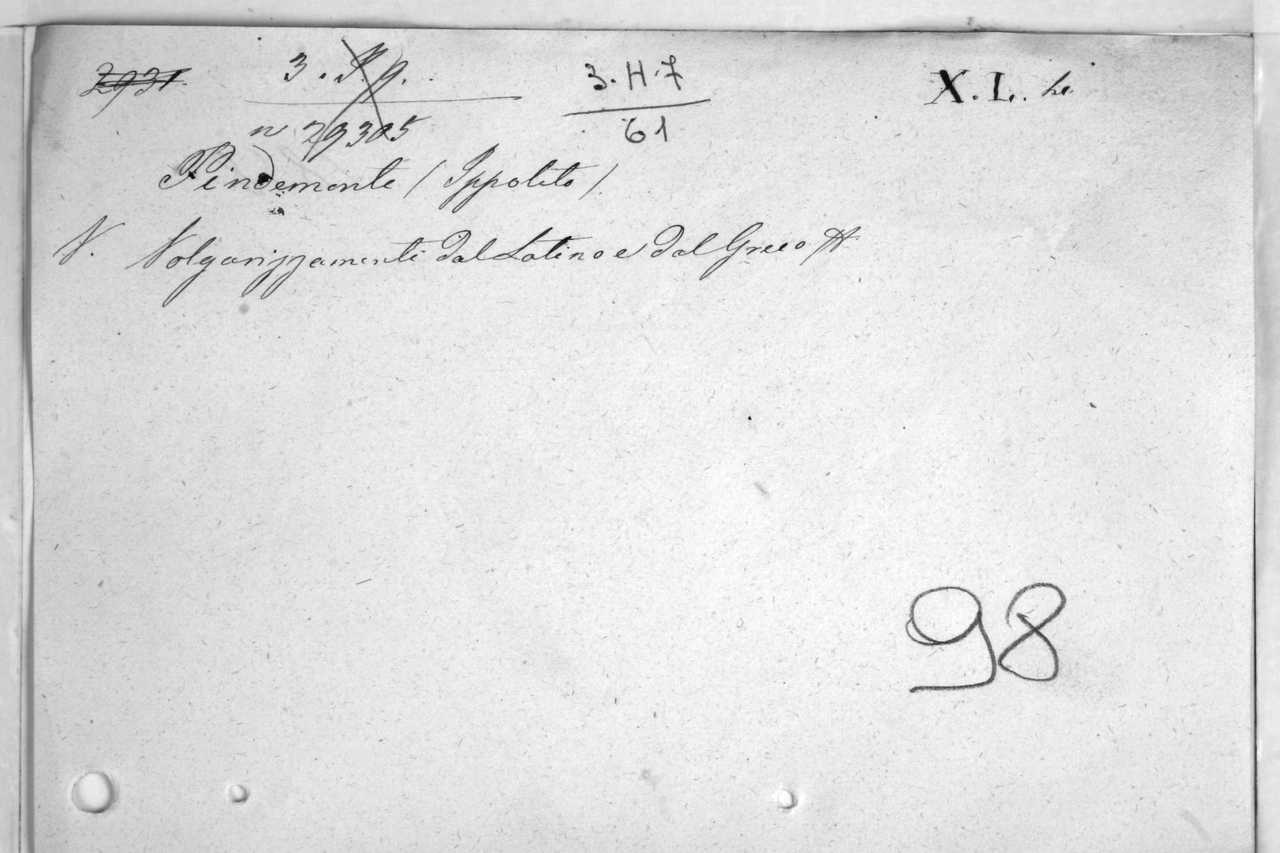 2931. 3. P.p. 3.H.7 X.L. hi
n 29305 61
Pindemonte (Ippolito).
V. Volgarizzamenti dal Latino e dal Greco
98